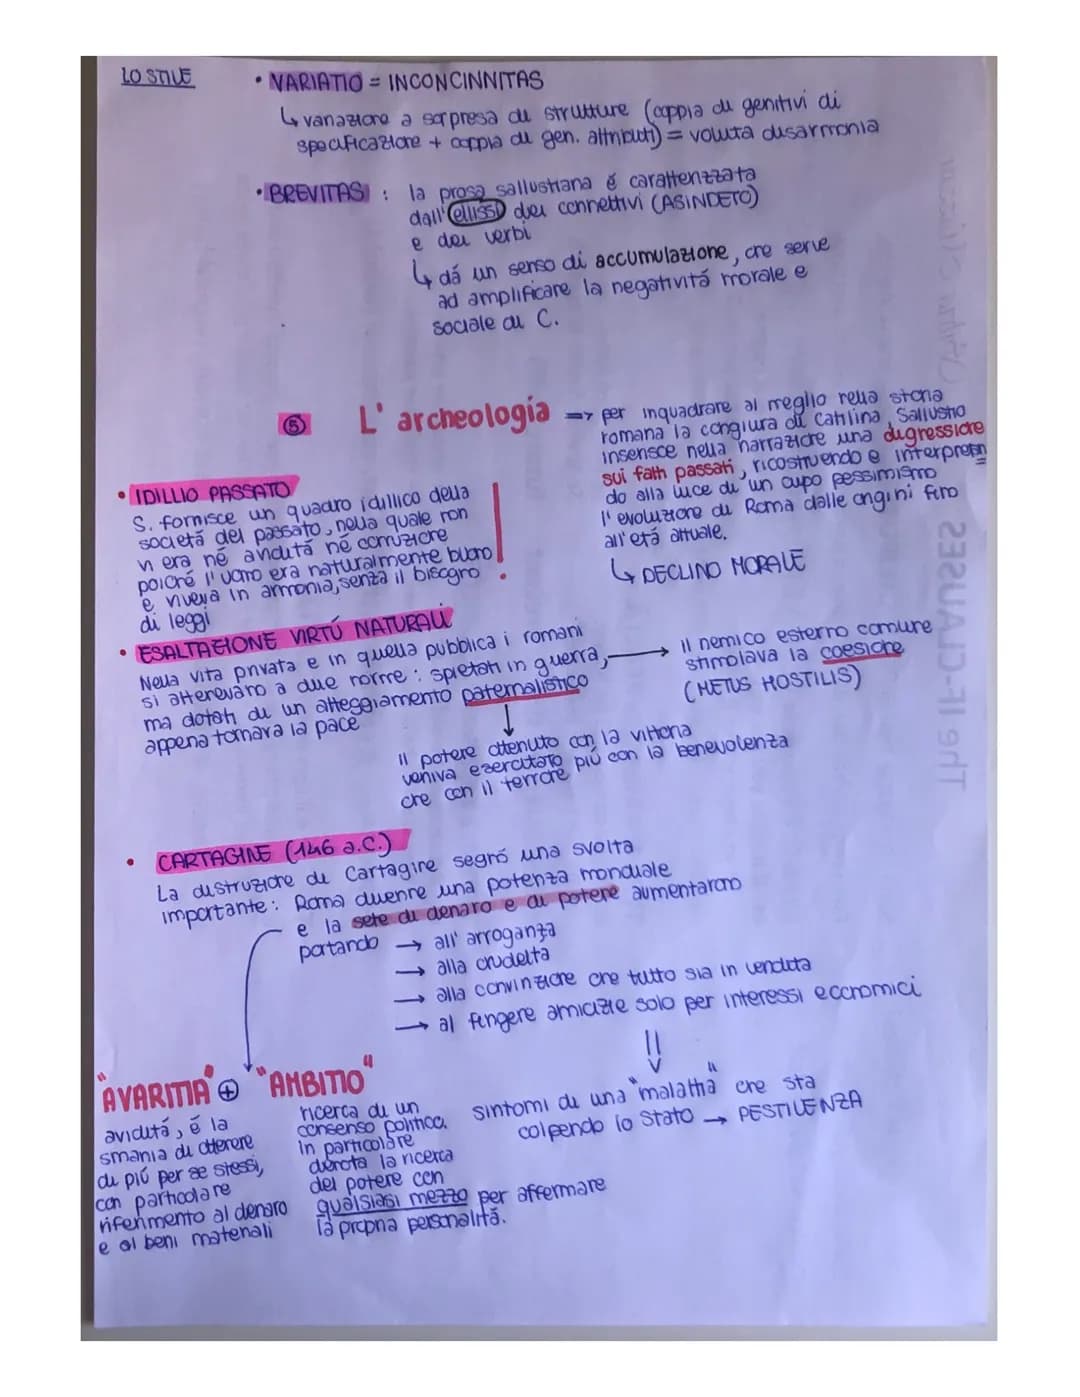 LO STILE
• VARIATIO = INCONCINNITAS
↳ variazione a sorpresa di strutture (coppia di genitivi di
specificazione + coppia di gen. attributi) = voluta disarmonia
• BREVITAS : la prosa sallustiana é caratterizzata
dall'ellissi dei connettivi (ASINDETO)
e dei verbi
↳ dá un senso di accumulazione, che serve
ad amplificare la negativitá morale e
sociale di C.
⑤ L'archeologia => per inquadrare al meglio nella storia
romana la congiura di Catilina, Sallustio
inserisce nella narrazione una digressione
sui fatti passati, ricostruendo e interpretan
do alla luce di un cupo pessimismo
l'evoluzione di Roma dalle origini fino
all'etá attuale.
↳ DECLINO MORALE
• IDILLIO PASSATO
S. fornisce un quadro idillico della
societá del passato, nella quale non
vi era né aviditá né corruzione
poiché l'uomo era naturalmente buono
e viveva in armonia, senza il bisogno
di leggi
!
• ESALTAZIONE VIRTÚ NATURALI
Nella vita privata e in quella pubblica i romani
si attenevano a due norme : spietati in guerra,
ma dotati di un atteggiamento paternalistico
appena tornava la pace
→ Il nemico esterno comune
stimolava la coesione
(METUS HOSTILIS)
↓
Il potere ottenuto con la vittoria
veniva esercitato piú con la benevolenza
che con il terrore
• CARTAGINE (146 a.C.)
La distruzione di Cartagine segnó una svolta
importante : Roma divenne una potenza mondiale
e la sete di denaro e di potere aumentarono
portando → all'arroganza
→ alla crudelta
→ alla convinzione che tutto sia in vendita
→ al fingere amicizie solo per interessi economici
"AVARITIA" ⊕ "AMBITIO"
aviditá, é la
smania di ottenere
di piú per se stessi,
con particolare
riferimento al denaro
e ai beni materiali
ricerca di un
consenso politico,
in particolare
denota la ricerca
del potere con
qualsiasi mezzo per affermare
la propria personalitá.
sintomi di una "malattia" che sta
colpendo lo Stato → PESTILENZA
The IF-CLAUSES